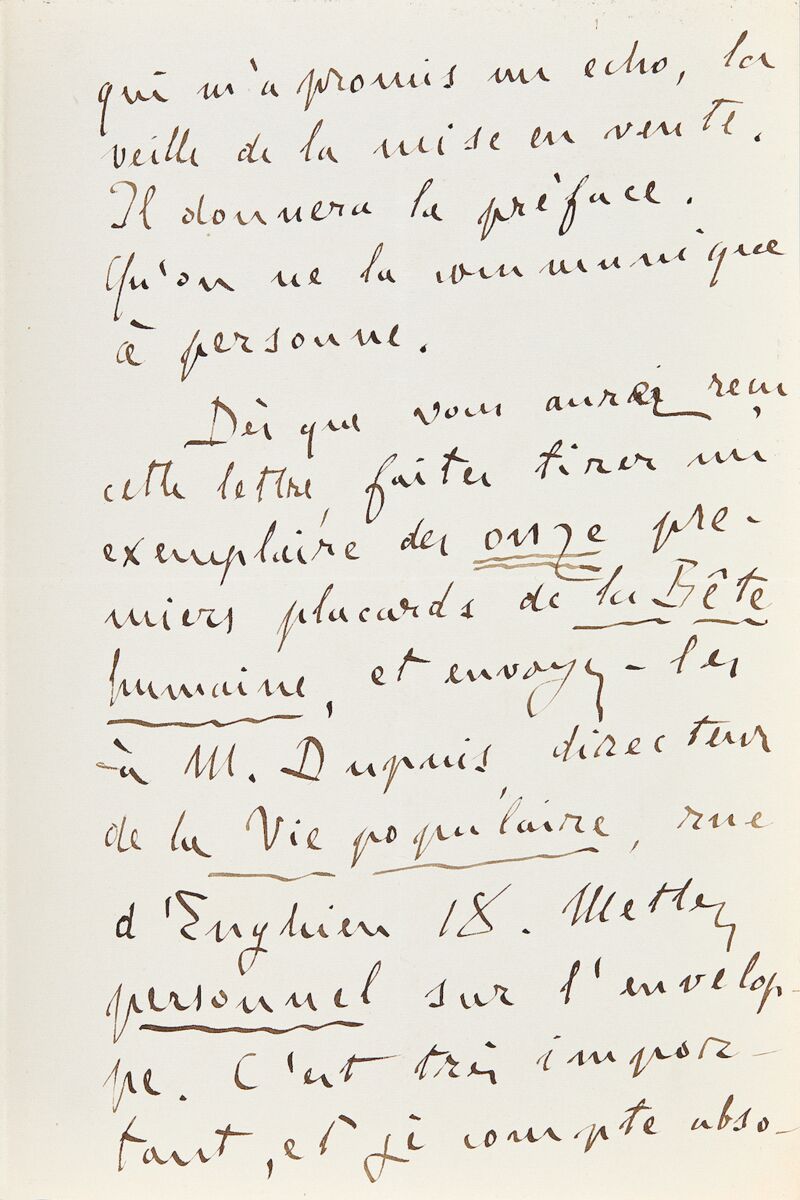 qui m'a promis un echo, la
veille de la mise en vente.
Il donnera la préface.
Qu'on ne la communique
à personne.
Dès que vous aurez reçu
cette lettre, faites tirer un
exemplaire des onze pre-
miers placards de la Bête
humaine, et envoyez-les
à M. Dupuis, directeur
de la Vie populaire, rue
d'Enghien 18. Mettez
personnel sur l'envelop-
pe. C'est très impor-
tant, et je compte abso-